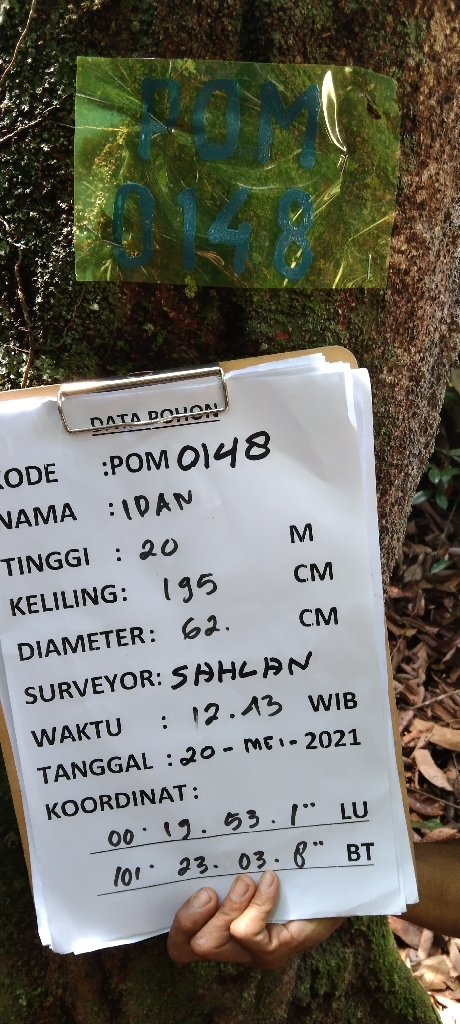 POM
0148
DATA POHON
KODE :POM 0148
NAMA : IDAN
TINGGI : 20 M
KELILING: 195 CM
DIAMETER: 62. CM
SURVEYOR: SAHLAN
WAKTU : 12.43 WIB
TANGGAL : 20 - MEI - 2021
KOORDINAT:
00. 19. 53. 1" LU
101. 23. 03. 8" BT